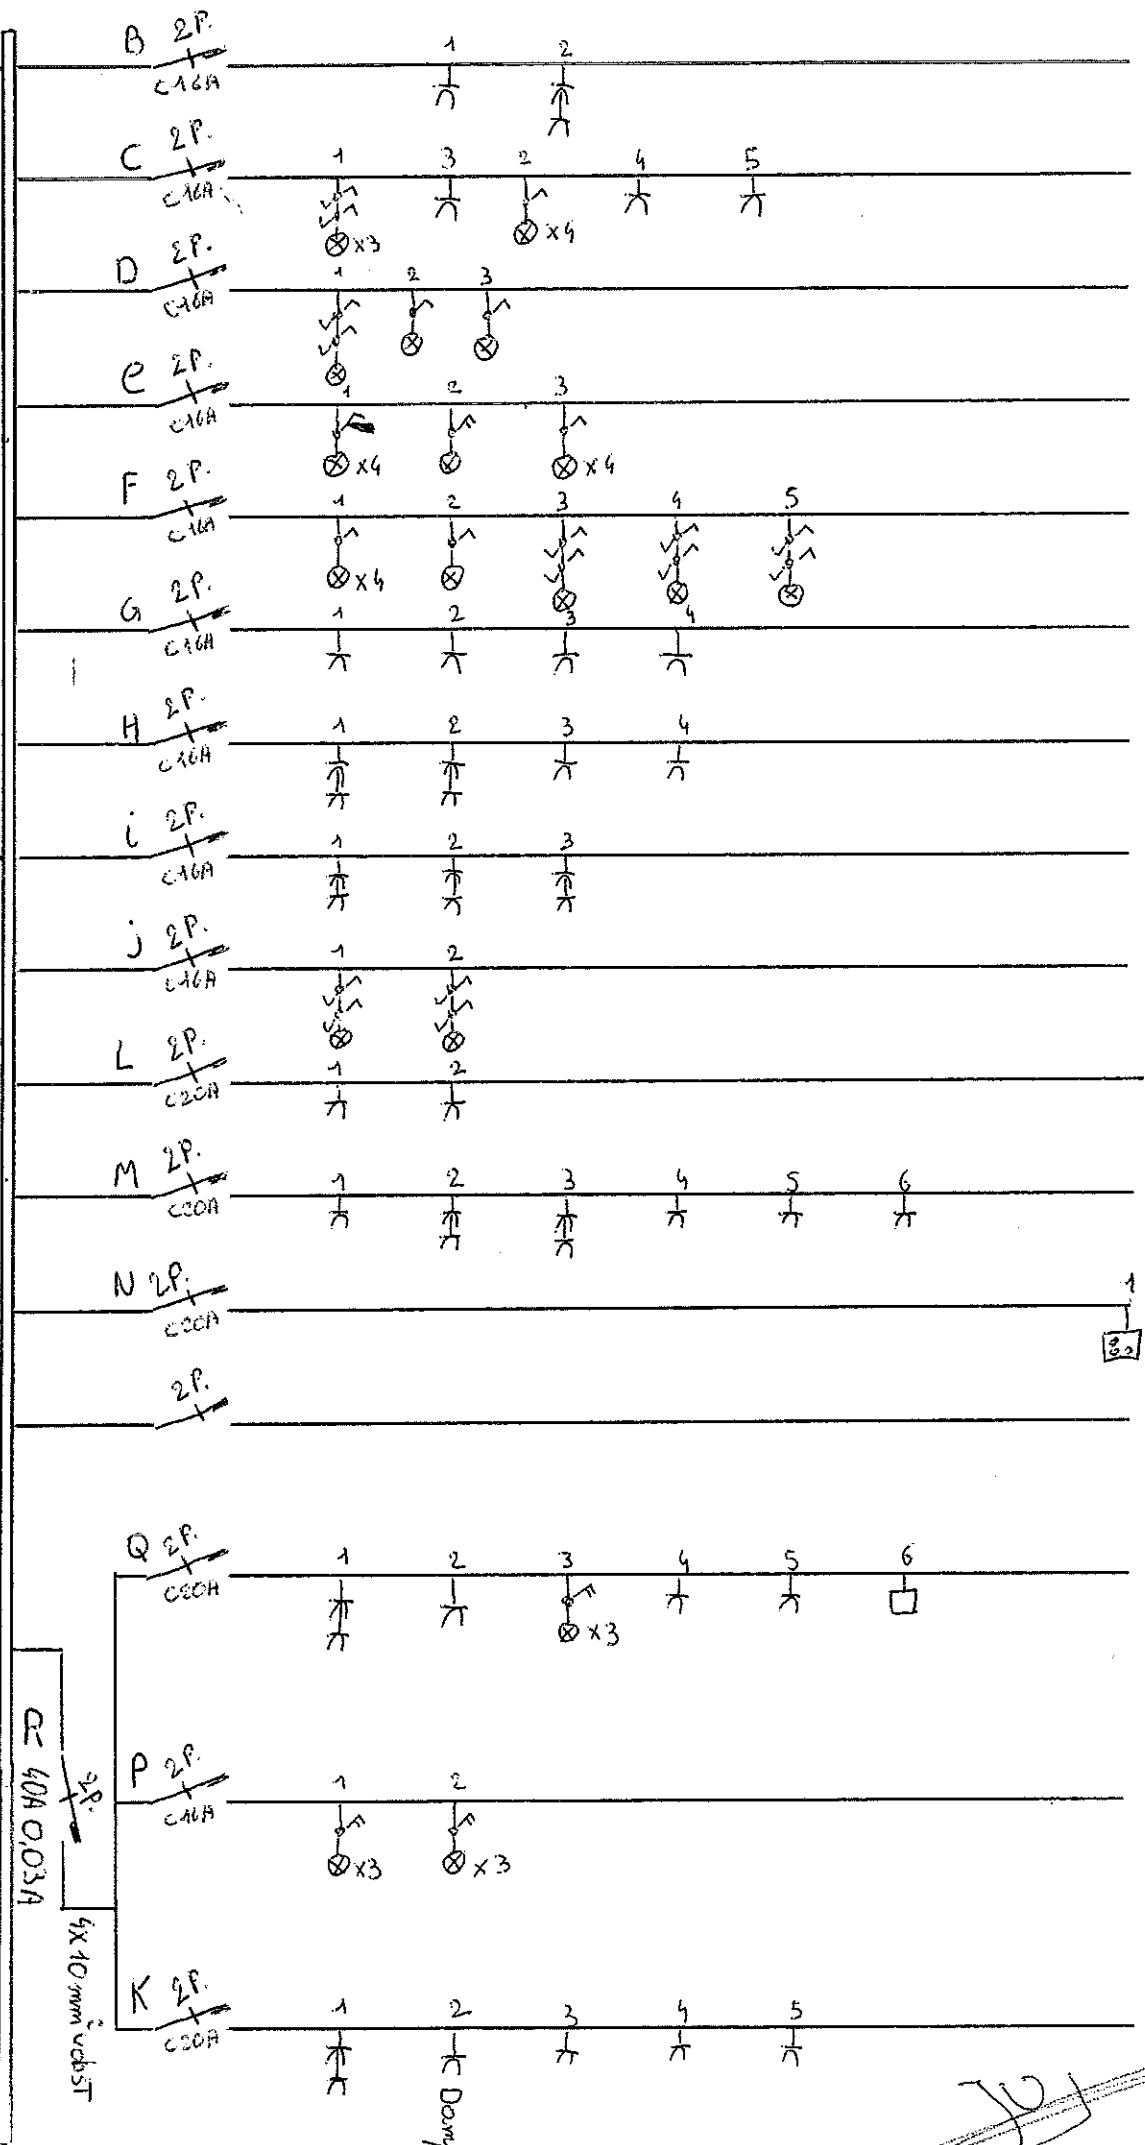 B 2P.
C16A
1 2
C 2P.
C16A
1 3 2 4 5
x3 x4
D 2P.
C16A
1 2 3
e 2P.
C16A
1 2 3
x4 x4
F 2P.
C16A
1 2 3 4 5
x4
G 2P.
C16A
1 2 3 4
H 2P.
C16A
1 2 3 4
i 2P.
C16A
1 2 3
j 2P.
C16A
1 2
L 2P.
C20A
1 2
M 2P.
C20A
1 2 3 4 5 6
N 2P.
C20A
1
2P.
Q 2P.
C20A
1 2 3 4 5 6
x3
R 40A 0,03A
2P.
4x10mm²
P 2P.
C16A
1 2
x3 x3
K 2P.
C20A
1 2 3 4 5